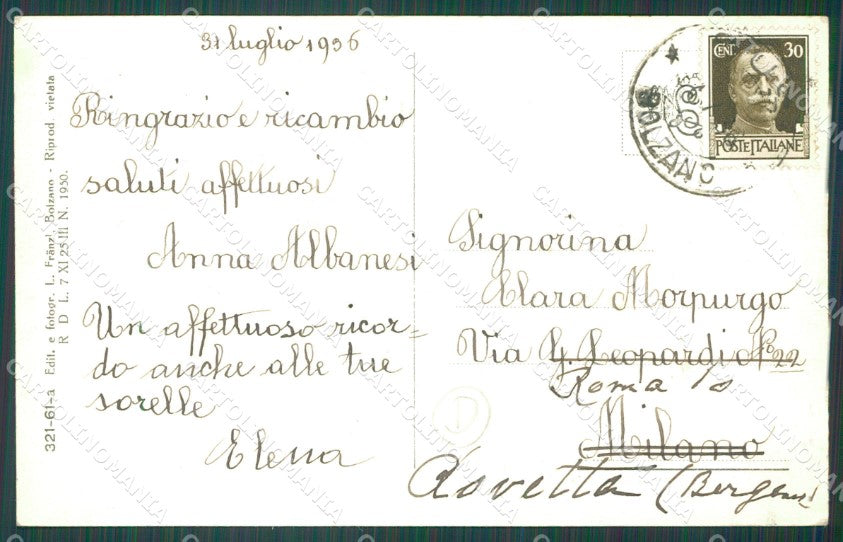 31 luglio 1936
Ringrazio e ricambio
saluti affettuosi
Anna Albanesi
Un affettuoso ricor-
do anche alle tue
sorelle
Elena
Signorina
Clara Morpurgo
Via G. Leopardi No 22
Roma
Milano
Rovetta (Bergamo)
CENT 30
POSTE ITALIANE
BOLZANO
321-61-a Edit. e fotogr. L. Fränzl Bolzano - Riprod. vietata
R D L. 7 XI 25 III N. 1950.
D
CARTOLINOMANIA